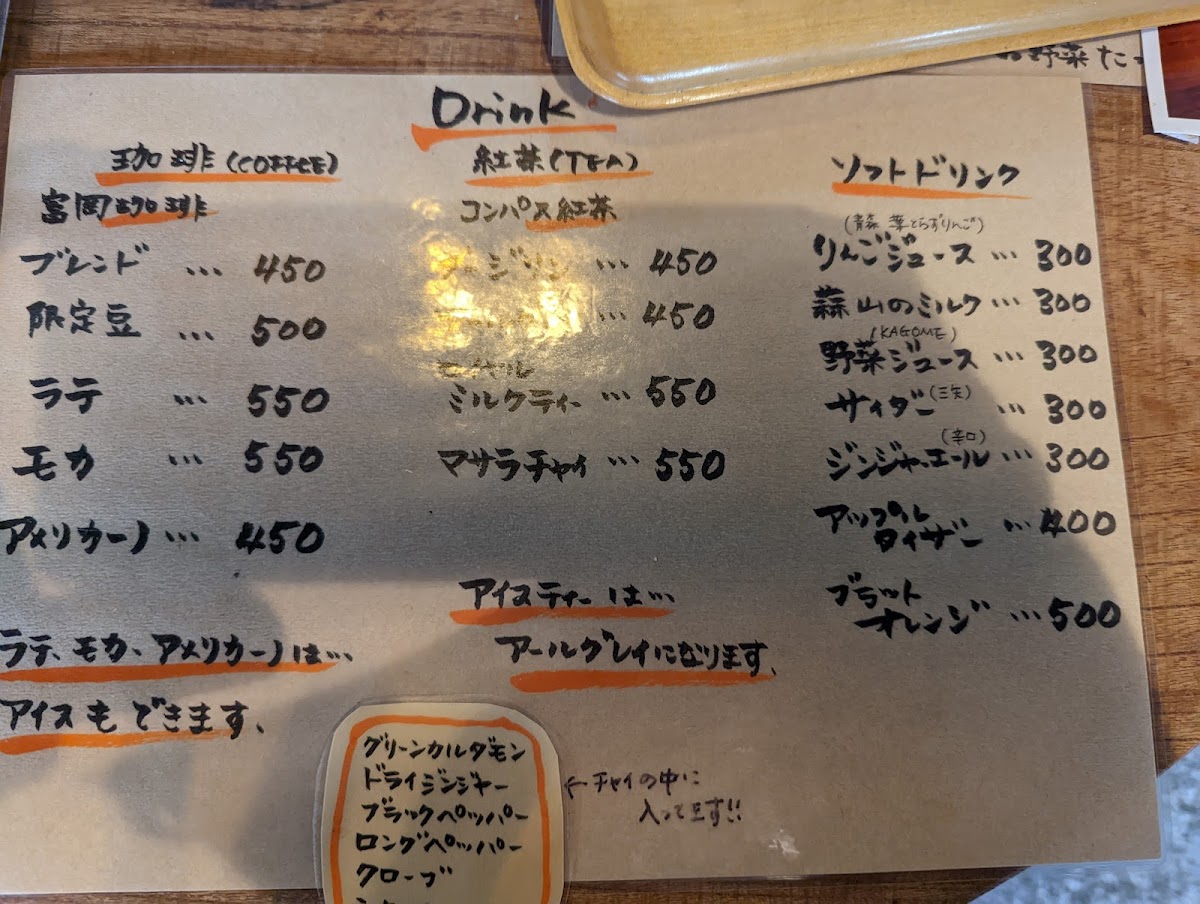 Drink
珈琲(COFFEE)
富岡珈琲
ブレンド … 450
限定豆 … 500
ラテ … 550
モカ … 550
アメリカーノ … 450
ラテ、モカ、アメリカーノは…
アイスもできます、
紅茶(TEA)
コンパス紅茶
ダージリン … 450
… 450
ロイヤル
ミルクティー … 550
マサラチャイ … 550
アイスティーは…
アールグレイになります、
ソフトドリンク
(青森 葉とらずりんご)
りんごジュース … 300
蒜山のミルク … 300
(KAGOME)
野菜ジュース … 300
サイダー(三矢) … 300
(辛口)
ジンジャーエール … 300
アップル
タイザー … 400
ブラット
オレンジ … 500
グリーンカルダモン
ドライジンジャー
ブラックペッパー
ロングペッパー
クローブ
←チャイの中に
入ってます!!
野菜た